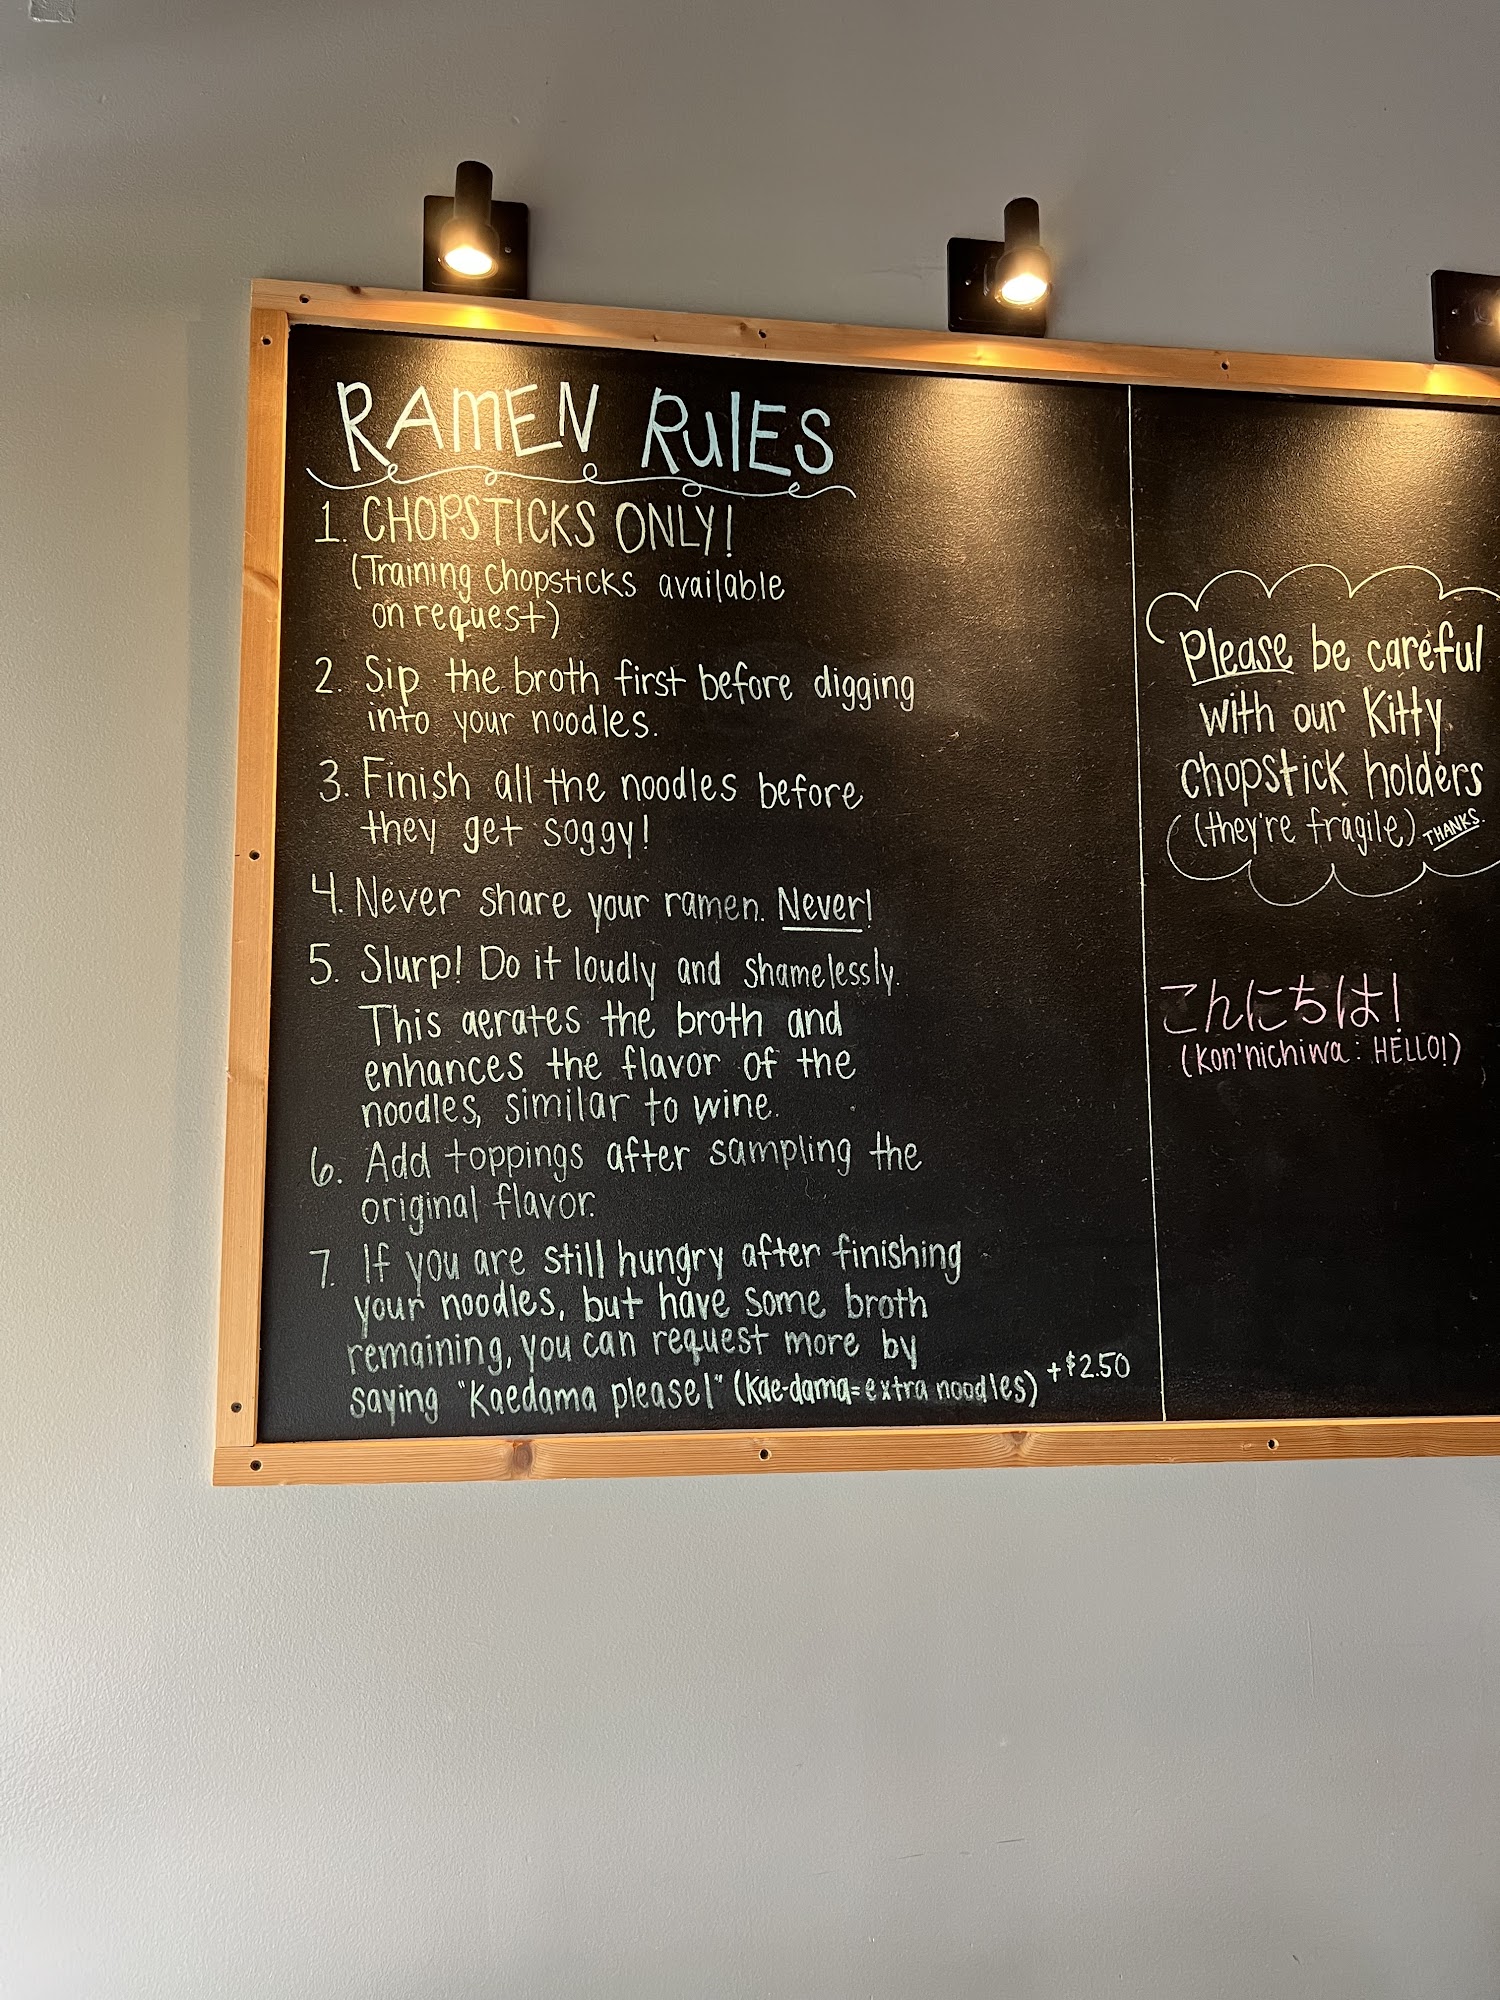 RAMEN RULES
1. CHOPSTICKS ONLY!
(Training chopsticks available
on request)
2. Sip the broth first before digging
into your noodles.
3. Finish all the noodles before
they get soggy!
4. Never share your ramen. Never!
5. Slurp! Do it loudly and shamelessly.
This aerates the broth and
enhances the flavor of the
noodles, similar to wine.
6. Add toppings after sampling the
original flavor.
7. If you are still hungry after finishing
your noodles, but have some broth
remaining, you can request more by
saying "Kaedama please!" (Kae-dama=extra noodles) +$2.50
Please be careful
with our Kitty
chopstick holders
(they're fragile) THANKS.
こんにちは!
(Kon'nichiwa: HELLO!)